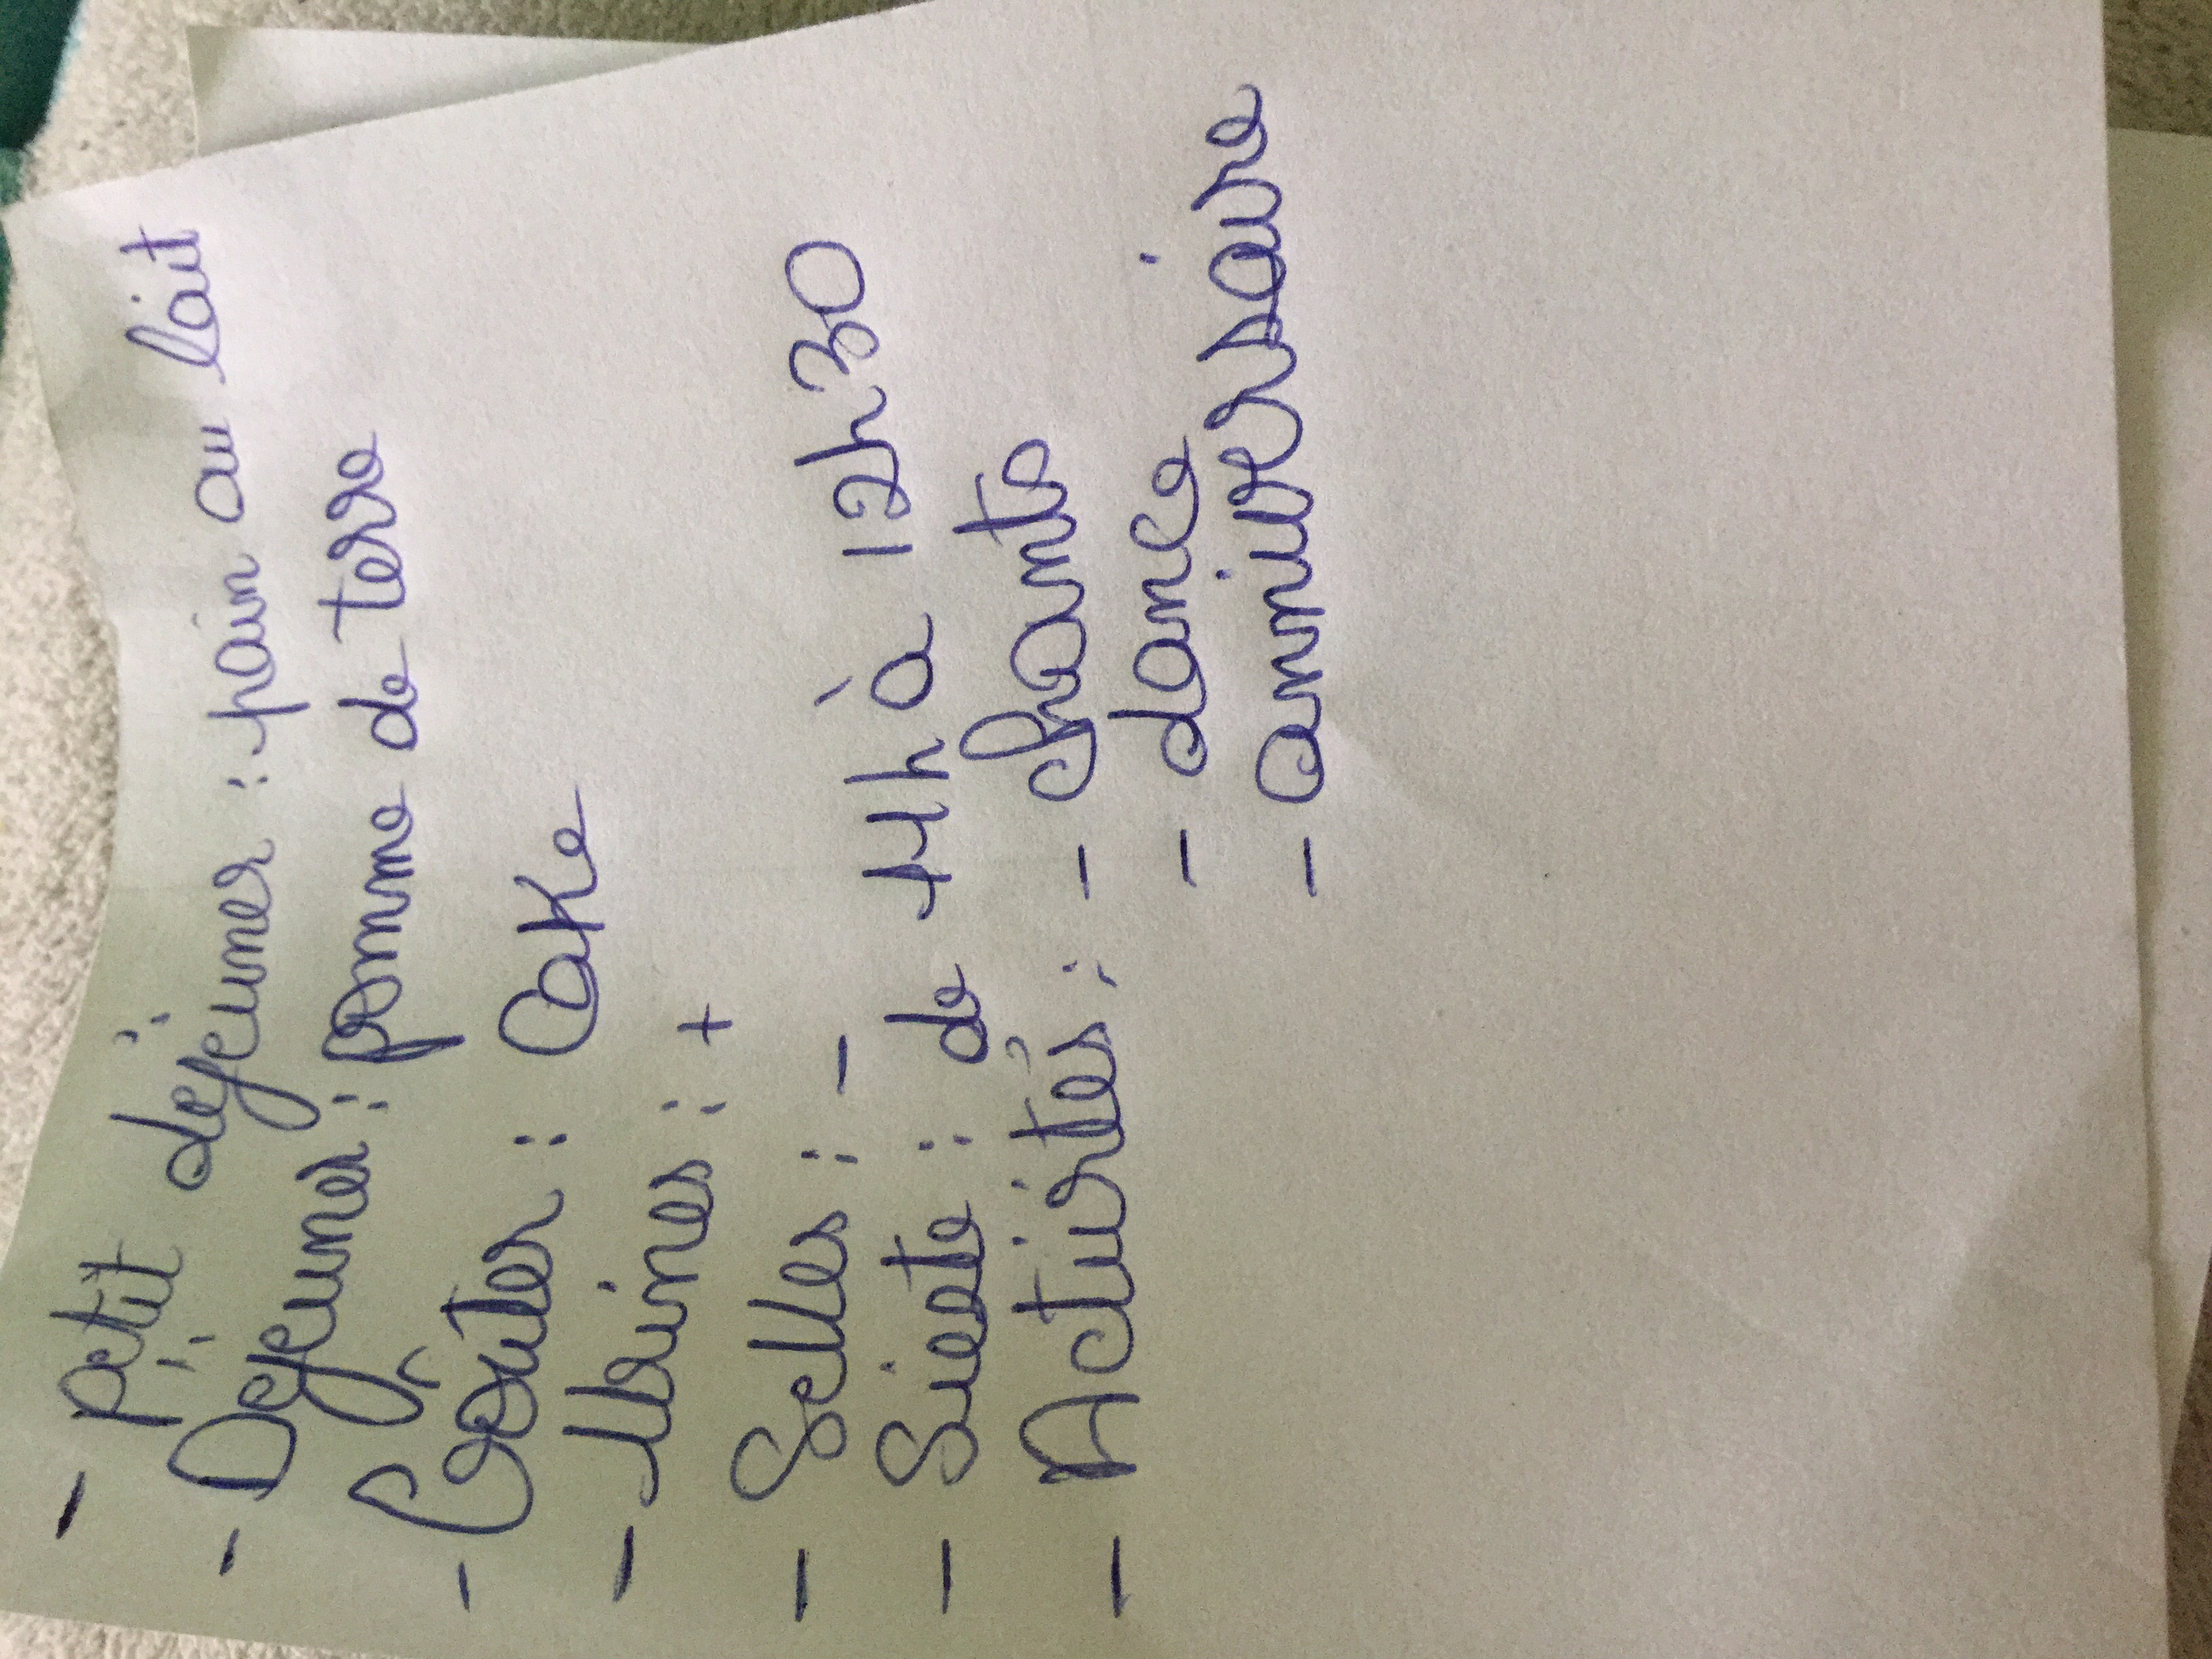 - petit déjeuner : pain au lait
- Déjeuner : pomme de terre
- Goûter : Cake
- Urines : +
- Selles : -
- Sieste : de 11h à 12h30
- Activités : - chants
- dance
- anniversaire